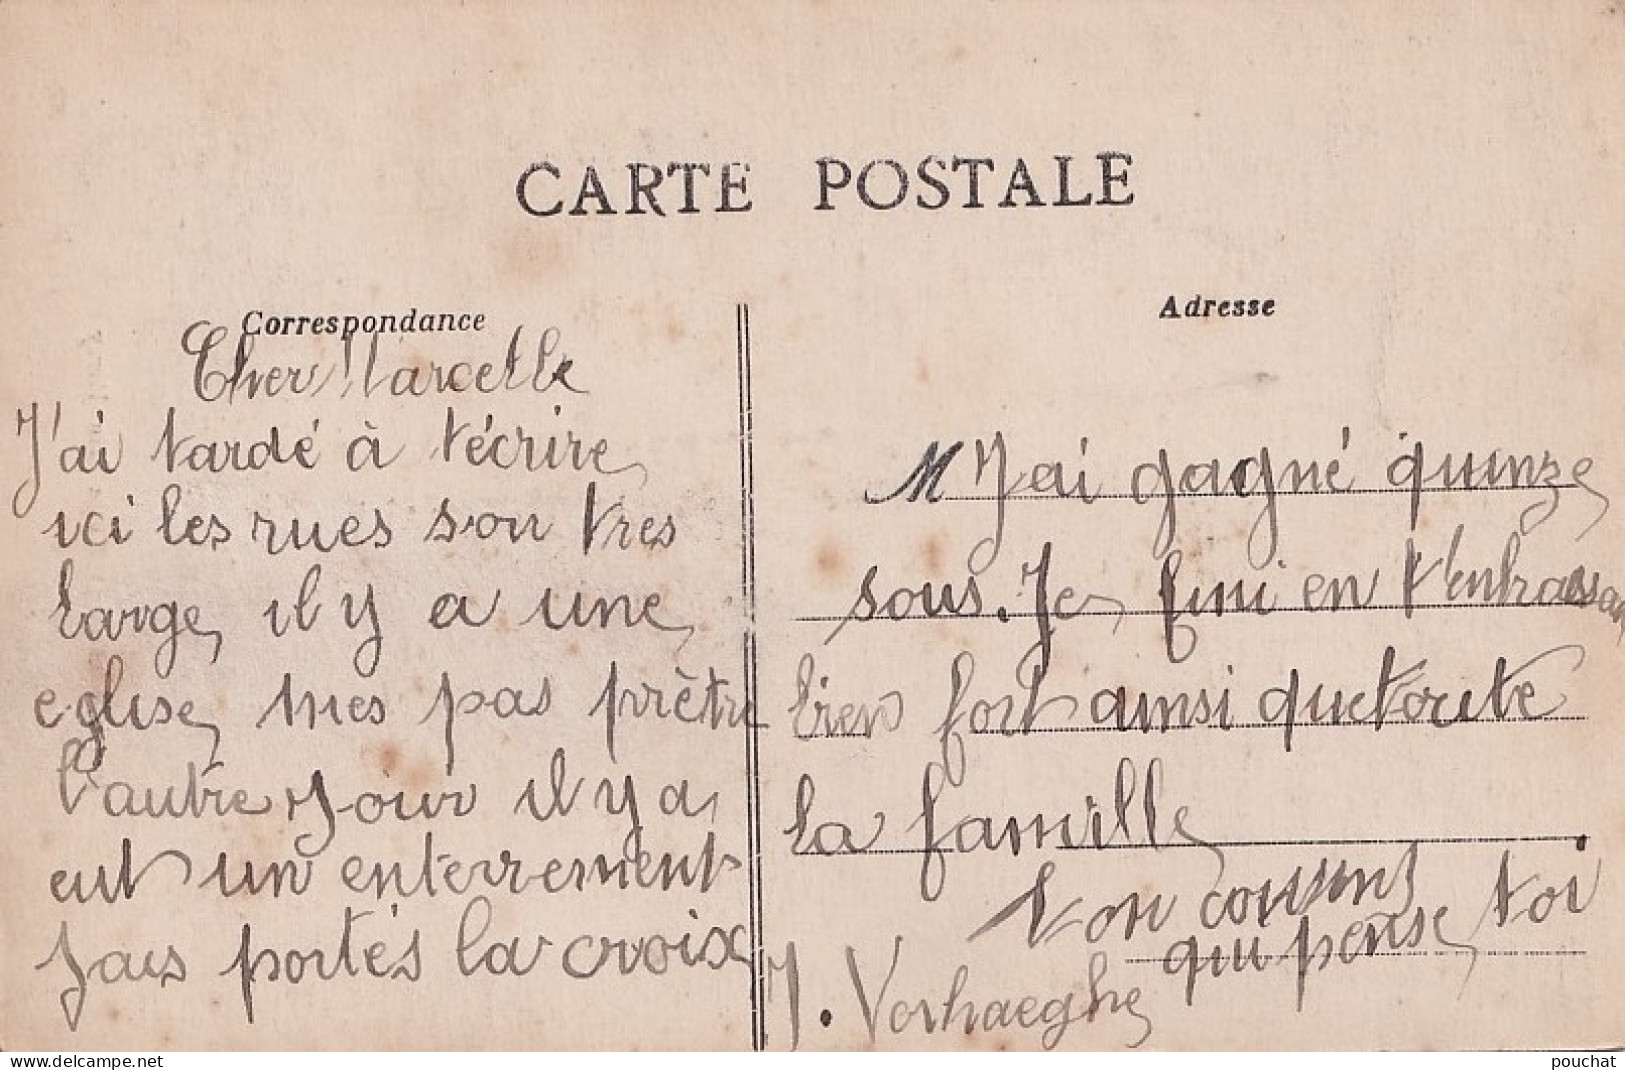 CARTE POSTALE
Correspondance
Cher Marcelle
J'ai tardé à t'écrire
ici les rues son tres
large il y a une
eglise mes pas prètre
l'autre jour il y a
eut un enterrement
J'ais portés la croix
Adresse
M J'ai gagné quinze
sous. Je fini en t'enbrassan
bien fort ainsi que toute
la famille
Ton cousins
qui pense toi
J. Verhaeghe
www.delcampe.net
pouchat